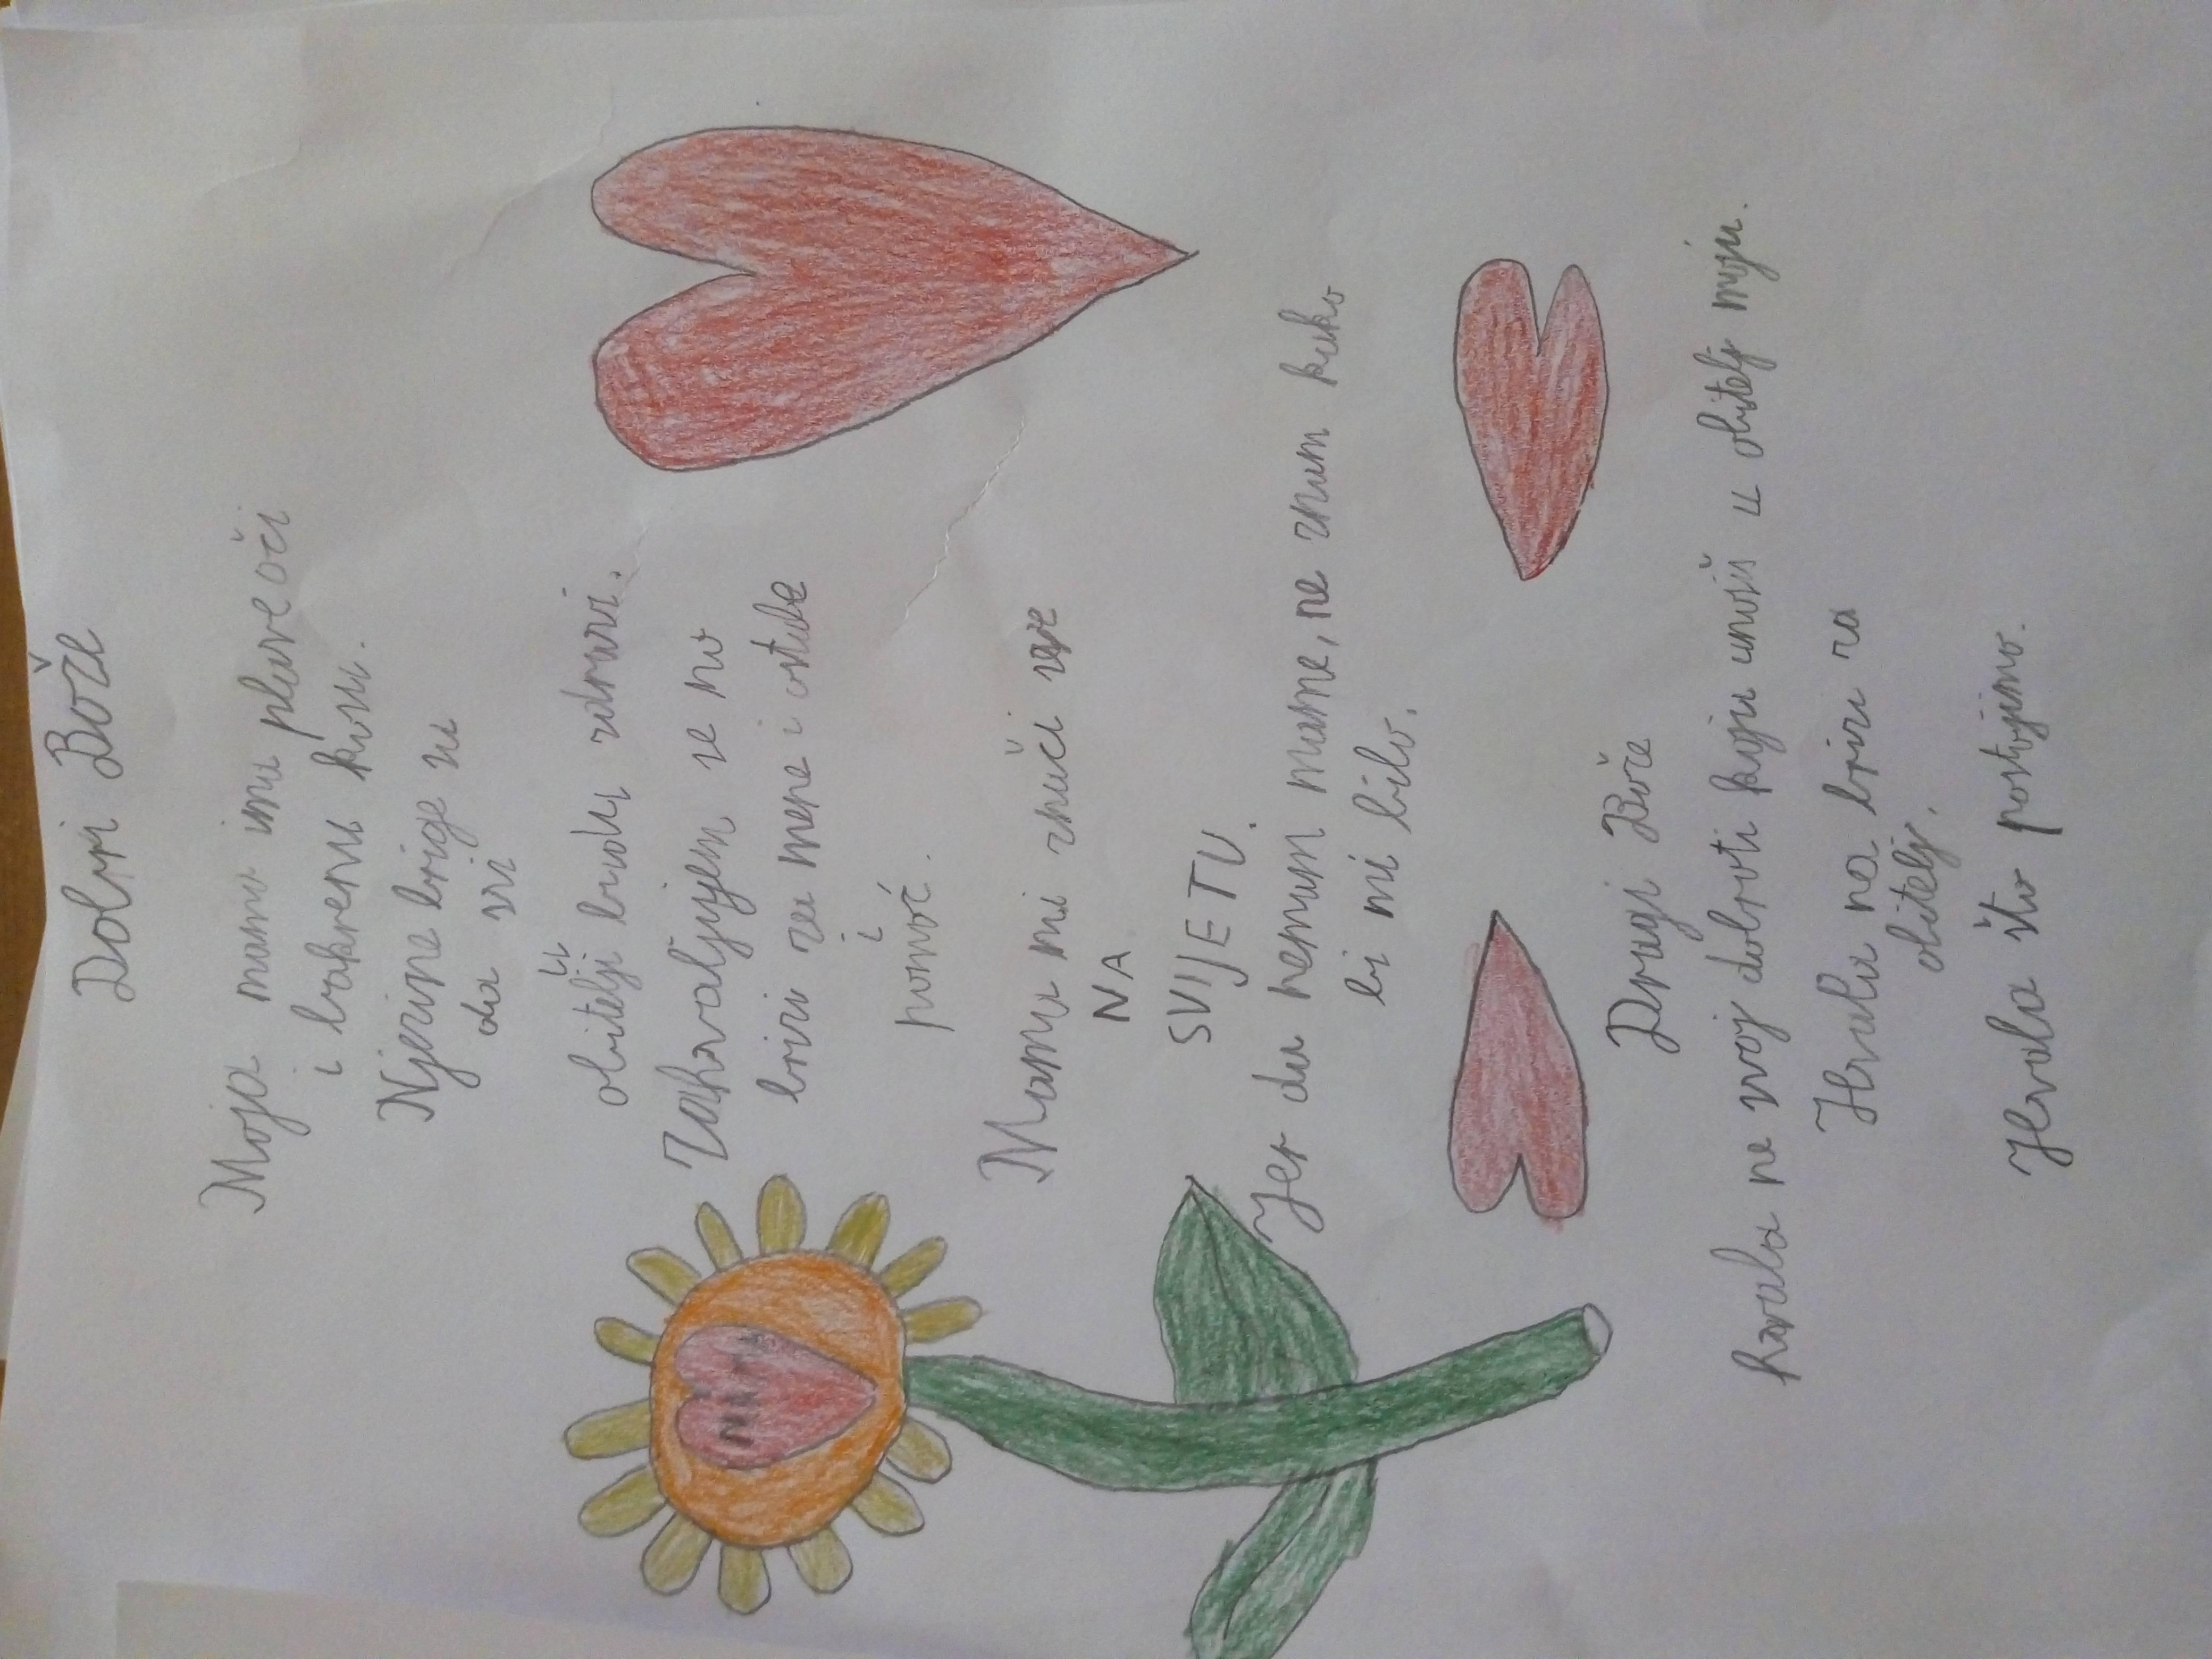 Dobri Bože
Moja mama ima plave oči
i bakrenu kosu.
Njezine brige su
da svi
u
obitelji budu zdravi.
Zahvaljujem se na
brizi za mene i ostale
i
pomoć.
Mama mi znači sve
NA
SVIJETU.
Jer da nemam mame, ne znam kako
bi mi bilo.
Dragi Bože
hvala na svoj dobroti koju unosiš u obitelj moju.
Hvala na brizi za
obitelj.
Hvala što postojimo.